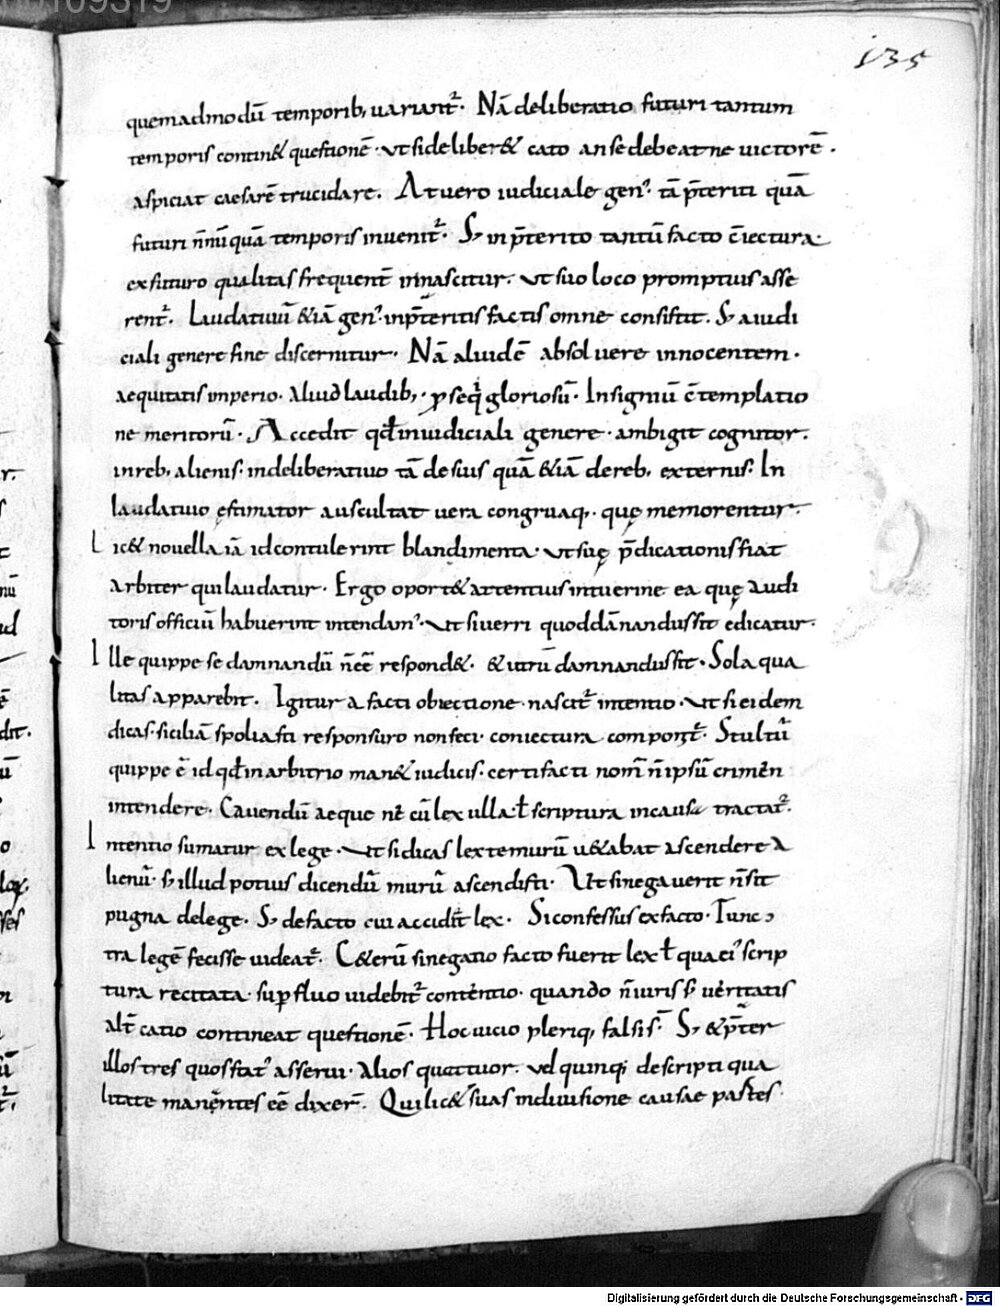 135
quemadmodū temporib; uariant᷑. Nā deliberatio futuri tantum
temporis contin& questionē · ut si deliber& cato an se debeat ne uictorē.
aspiciat caesarē trucidare. At uero iudiciale gen᾽. tā p̄teriti quā
futuri n̄nūquā temporis inuenit᷑. S; in p̄terito tantū facto c̄iectura.
ex futuro qualitas frequent̄ innascitur. ut suo loco promptius asse
rent᷑. Laudatiuū &iā gen᾽ in p̄teritis factis omne consistit. S; a iudi
ciali genere fine discernitur. Nā aliud ē absoluere innocentem.
aequitatis imperio. Aliud laudib; · ꝓseq̇ gloriosū. Insigniū c̄templatio
ne meritorū. Accedit qđ in iudiciali genere · ambigit cognitor.
in reb; alienis. in deliberatiuo tā de suis quā &iā de reb; externis. In
laudatiuo ęstimator auscultat uera congruaq; · quę memorentur.
Lic& nouella iā id contulerint blandimenta · ut suę p̄dicationis fiat
arbiter qui laudatur. Ergo oport& attentius intuerine ea quę audi
toris officiū habuerint intendam᾽. ut si uerri quoddā nandus sit edicatur.
Ille quippe se damnandū n̄ēē respond&. & utrū damnandus sit. Sola qua
litas apparebit. Igitur a facti obiectione · nascit᷑ intentio. Ut si eidem
dicas · siciliā spoliasti responsuro non feci. coniectura componit᷑. Stultū
quippe ē id qđ in arbitrio man& iudicis. certi facti nom̄ n̄ ipsū crimēn
intendere. Cauendū aeque nē cū lex ulla ł scriptura in causa tractat᷑.
Intentio sumatur ex lege. Ut si dicas lex te murū u&abat ascendere a
lienū. s; illud potius dicendū murū ascendisti. Ut si negauerit n̄ sit
pugna de lege. S; de facto cui accidit lex. Si confessus ex facto. Tunc
tra legē fecisse uideat᷑. C&erū si negatio facto fuerit lex ł quaei᾽ scrip
tura recitata · suꝑfluo uidebit᷑ contentio · quando n̄ iuris s; uęritatis
alt̄catio contineat questionē. Hoc uicio pleriq; falsi s̄. S; & p̄ter
illos tres quos stat᾽ asserui. Alios quattuor. uel quinq; descripti qua
litate manentes eē dixer̄. Qui lic& suas in diuisione causae partes
Digitalisierung gefördert durch die Deutsche Forschungsgemeinschaft - DFG